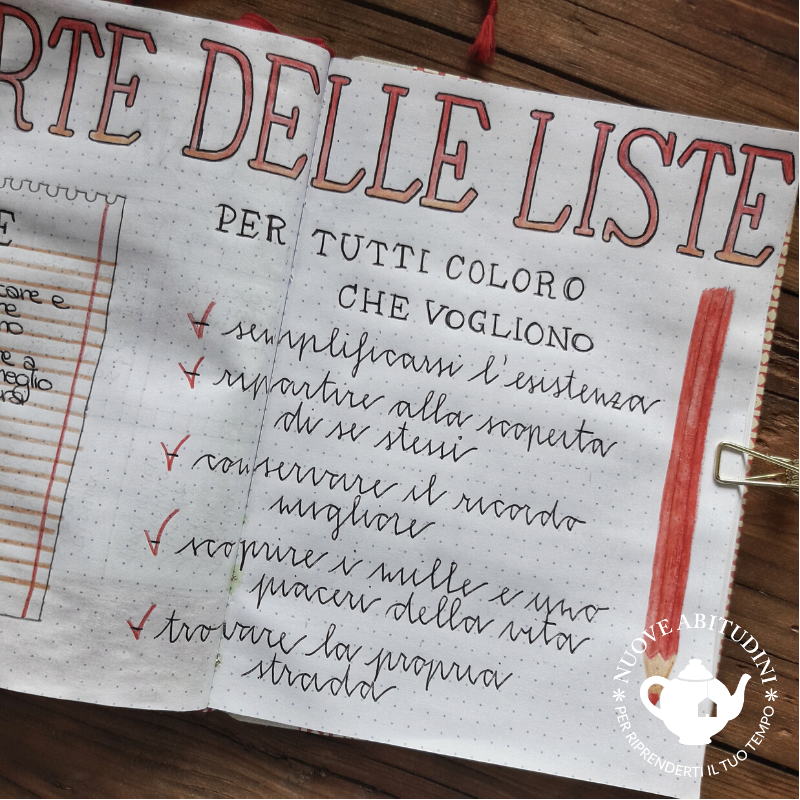 RTE DELLE LISTE
PER TUTTI COLORO
CHE VOGLIONO
- semplificarsi l'esistenza
- ripartire alla scoperta
di se stessi
- conservare il ricordo
migliore
- scoprire i mille e uno
piaceri della vita
- trovare la propria
strada
E
e
no
e a
meglio
NUOVE ABITUDINI
* PER RIPRENDERTI IL TUO TEMPO *